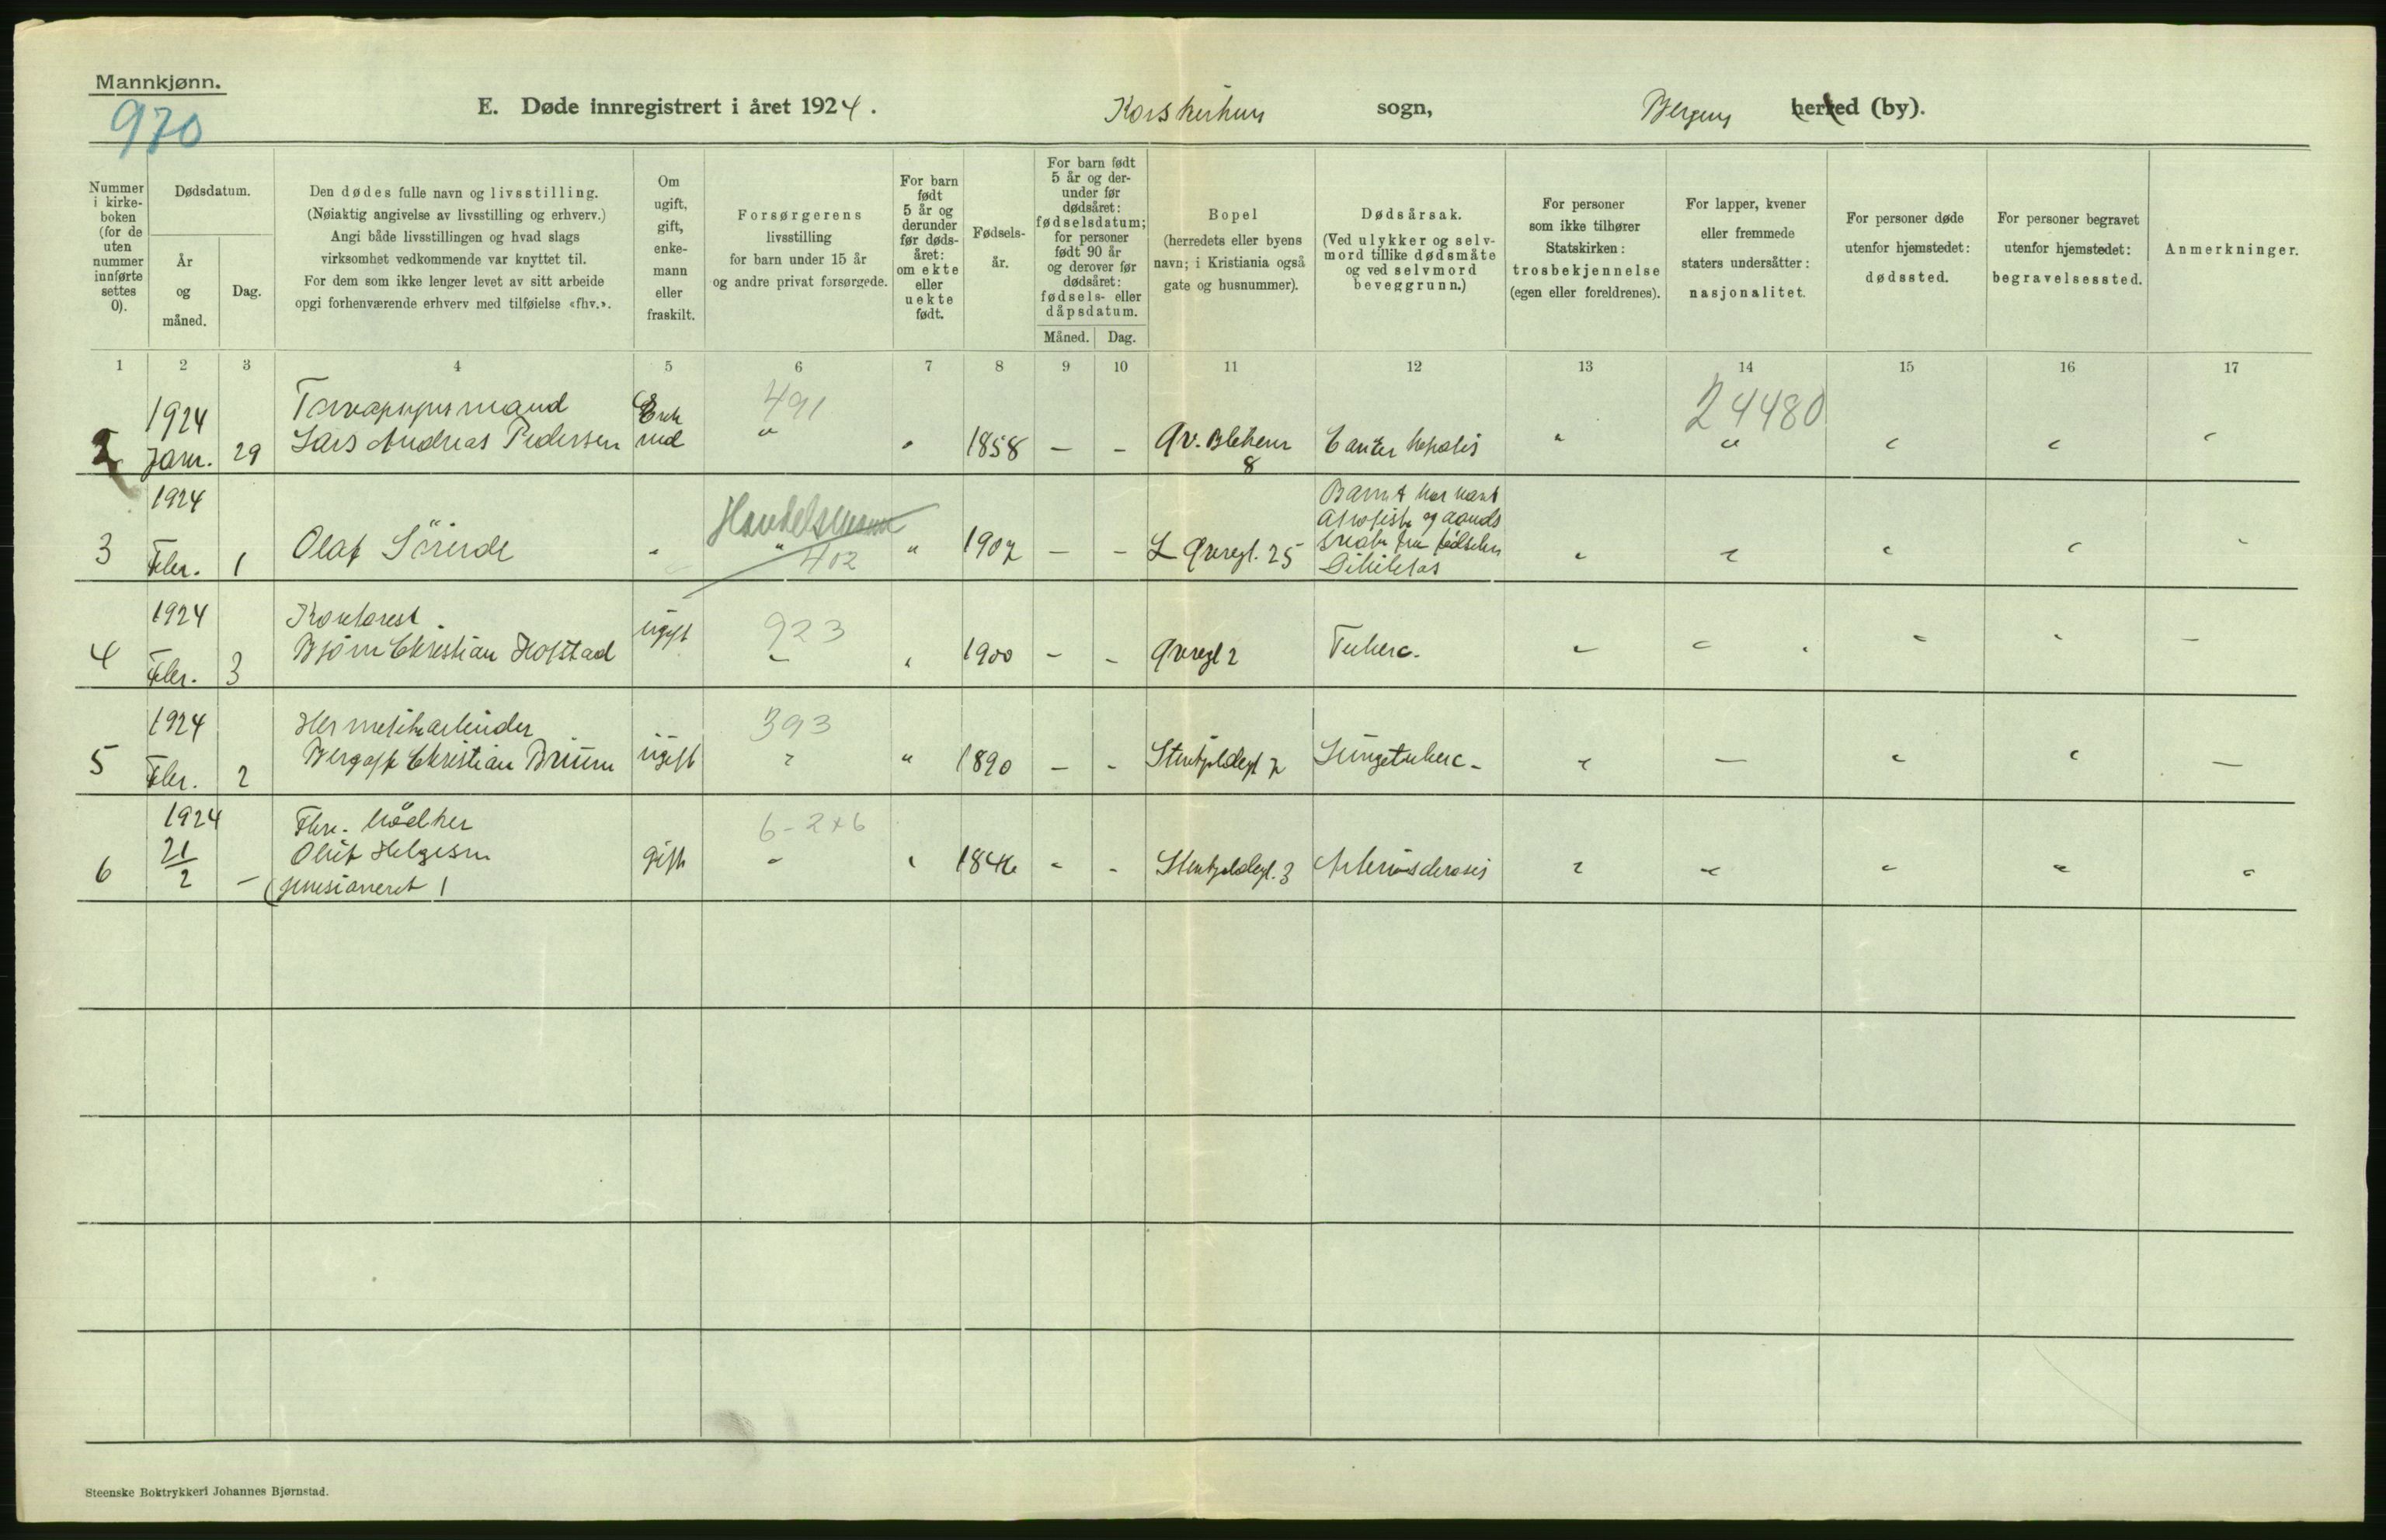 Mannkjønn.
970
E. Døde innregistrert i året 1924.
Korskirkens sogn,
Bergens herred (by).
Nummer i kirke-boken (for de uten nummer innførte settes 0).
Dødsdatum.
År og måned.
Dag.
Den dødes fulle navn og livsstilling.
(Nøiaktig angivelse av livsstilling og erhverv.)
Angi både livsstillingen og hvad slags
virksomhet vedkommende var knyttet til.
For dem som ikke lenger levet av sitt arbeide
opgi forhenværende erhverv med tilføielse «fhv.».
Om ugift, gift, enke-mann eller fraskilt.
Forsørgerens
livsstilling
for barn under 15 år
og andre privat forsørgede.
For barn født 5 år og derunder før døds-året: om ekte eller uekte født.
Fødsels-år.
For barn født 5 år og der-under før dødsåret: fødselsdatum; for personer født 90 år og derover før dødsåret: fødsels- eller dåpsdatum.
Måned.
Dag.
Bopel
(herredets eller byens
navn; i Kristiania også
gate og husnummer).
Dødsårsak.
(Ved ulykker og selv-
mord tillike dødsmåte
og ved selvmord
beveggrunn.)
For personer
som ikke tilhører
Statskirken:
trosbekjennelse
(egen eller foreldrenes).
For lapper, kvener
eller fremmede
staters undersåtter:
nasjonalitet.
For personer døde
utenfor hjemstedet:
dødssted.
For personer begravet
utenfor hjemstedet:
begravelsessted.
Anmerkninger.
1 2 3 4 5 6 7 8 9 10 11 12 13 14 15 16 17
1924 491 24480
2 Jan. 29 Lars Andreas Pedersen " " 1858 — - 8 " " " " "
1924 Handelsmann Barnet har havt
3 Febr. 1 Olaf " 402 " 1907 — - 25 fra fødselen " " " " "
1924 Kontorist ugift 923
4 Febr. 3 Bjørn Christian Hofstad " " 1900 - - 2 Tuberc. " " " " —
1924 Hermetikarbeider 393
5 Febr. 2 Christian Bruun ugift " " 1890 — - Lungetuberc. " — " " —
1924 Fhv. bødker 6-2+6
6 21/2 - Oluf Helgesen gift " " 1846 " - 3 Arteriosclerosis " " " " "
(pensioneret)
Steenske Boktrykkeri Johannes Bjørnstad.